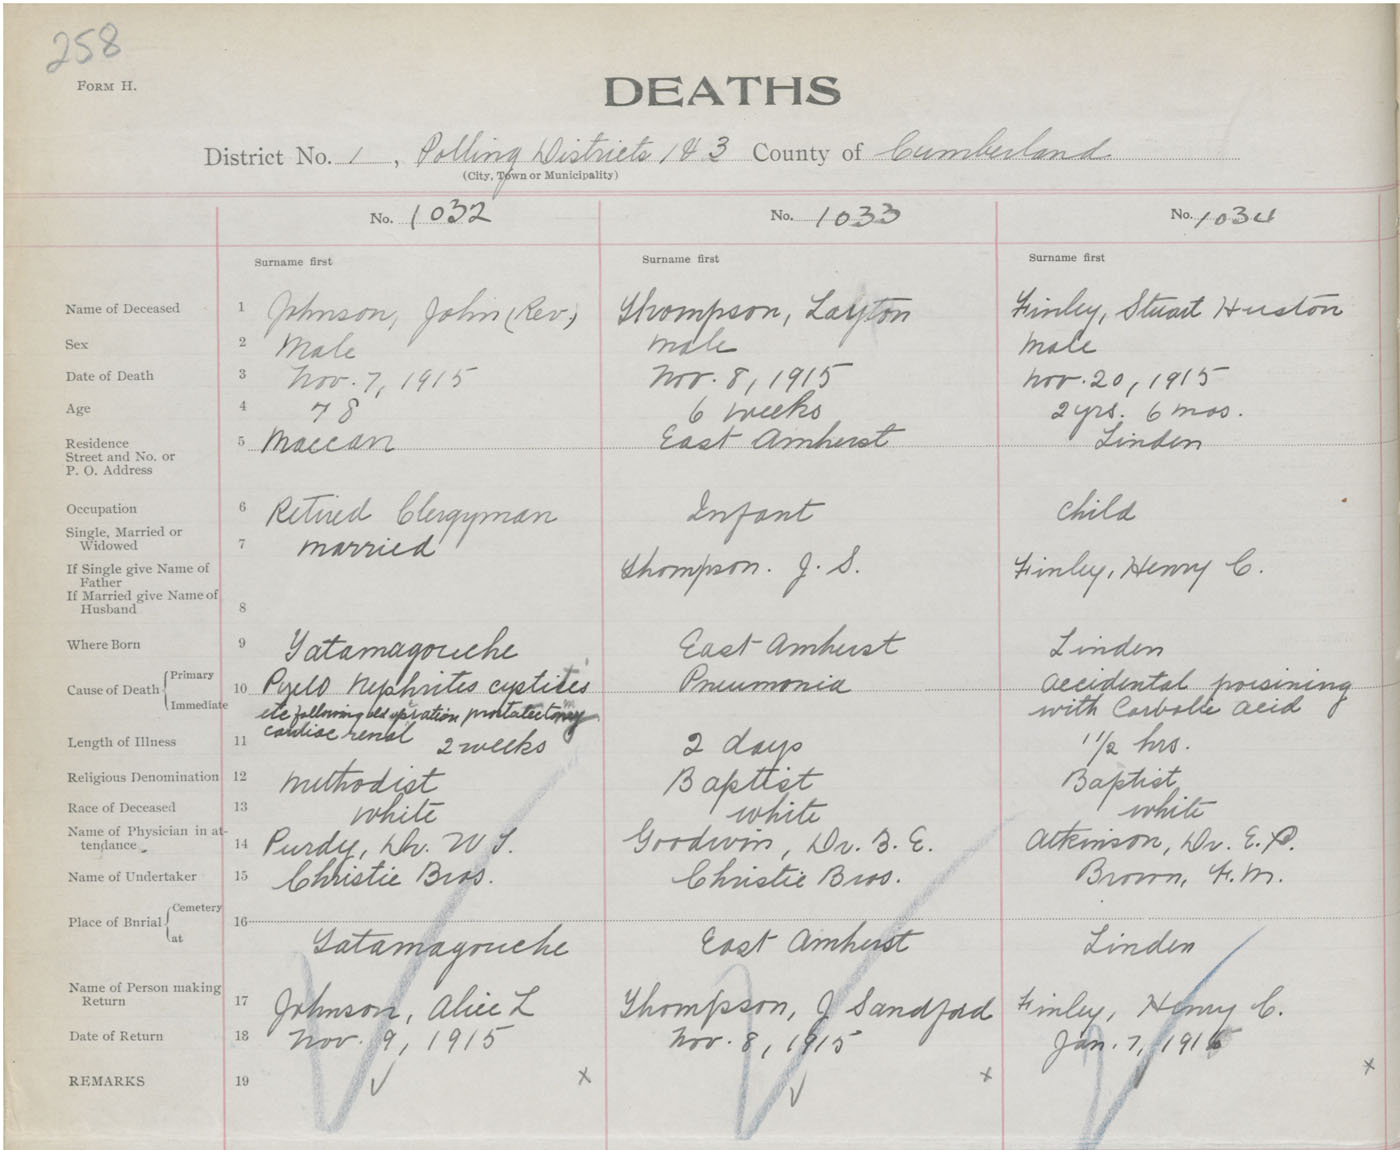 258
FORM H.
DEATHS
District No. 1, Polling Districts 1 & 3 County of Cumberland
(City, Town or Municipality)
No. 1032 No. 1033 No. 1034
Surname first Surname first Surname first
Name of Deceased 1 Johnson, John (Rev.) Thompson, Layton Finley, Stuart Huston
Sex 2 Male male male
Date of Death 3 Nov. 7, 1915 Nov. 8, 1915 Nov. 20, 1915
Age 4 78 6 weeks 2 yrs. 6 mos.
Residence 5 Maccan East Amherst Linden
Street and No. or
P. O. Address
Occupation 6 Retired Clergyman Infant child
Single, Married or
Widowed 7 married
If Single give Name of Thompson. J. S. Finley, Henry C.
Father
If Married give Name of
Husband 8
Where Born 9 Tatamagouche East Amherst Linden
Cause of Death { Primary 10 Pyelo Nephrites cystites Pneumonia accidental poisining
Immediate etc following old operation prostatectomy with Carbolic acid
cardiac renal
Length of Illness 11 2 weeks 2 days 1 1/2 hrs.
Religious Denomination 12 Methodist Baptist Baptist
Race of Deceased 13 white white white
Name of Physician in at-
tendance 14 Purdy, Dr. W T. Goodwin, Dr. B. E. Atkinson, Dr. E. P.
Name of Undertaker 15 Christie Bros. Christie Bros. Brown, F. M.
Place of Bnrial { Cemetery 16
at Tatamagouche East Amherst Linden
Name of Person making
Return 17 Johnson, Alice L Thompson, J Sandford Finley, Henry C.
Date of Return 18 Nov. 9, 1915 Nov. 8, 1915 Jan. 7, 1916
REMARKS 19 ✓ x ✓ x x